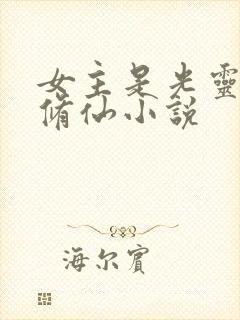 女主是光靈
脩仙小說
海尔賓